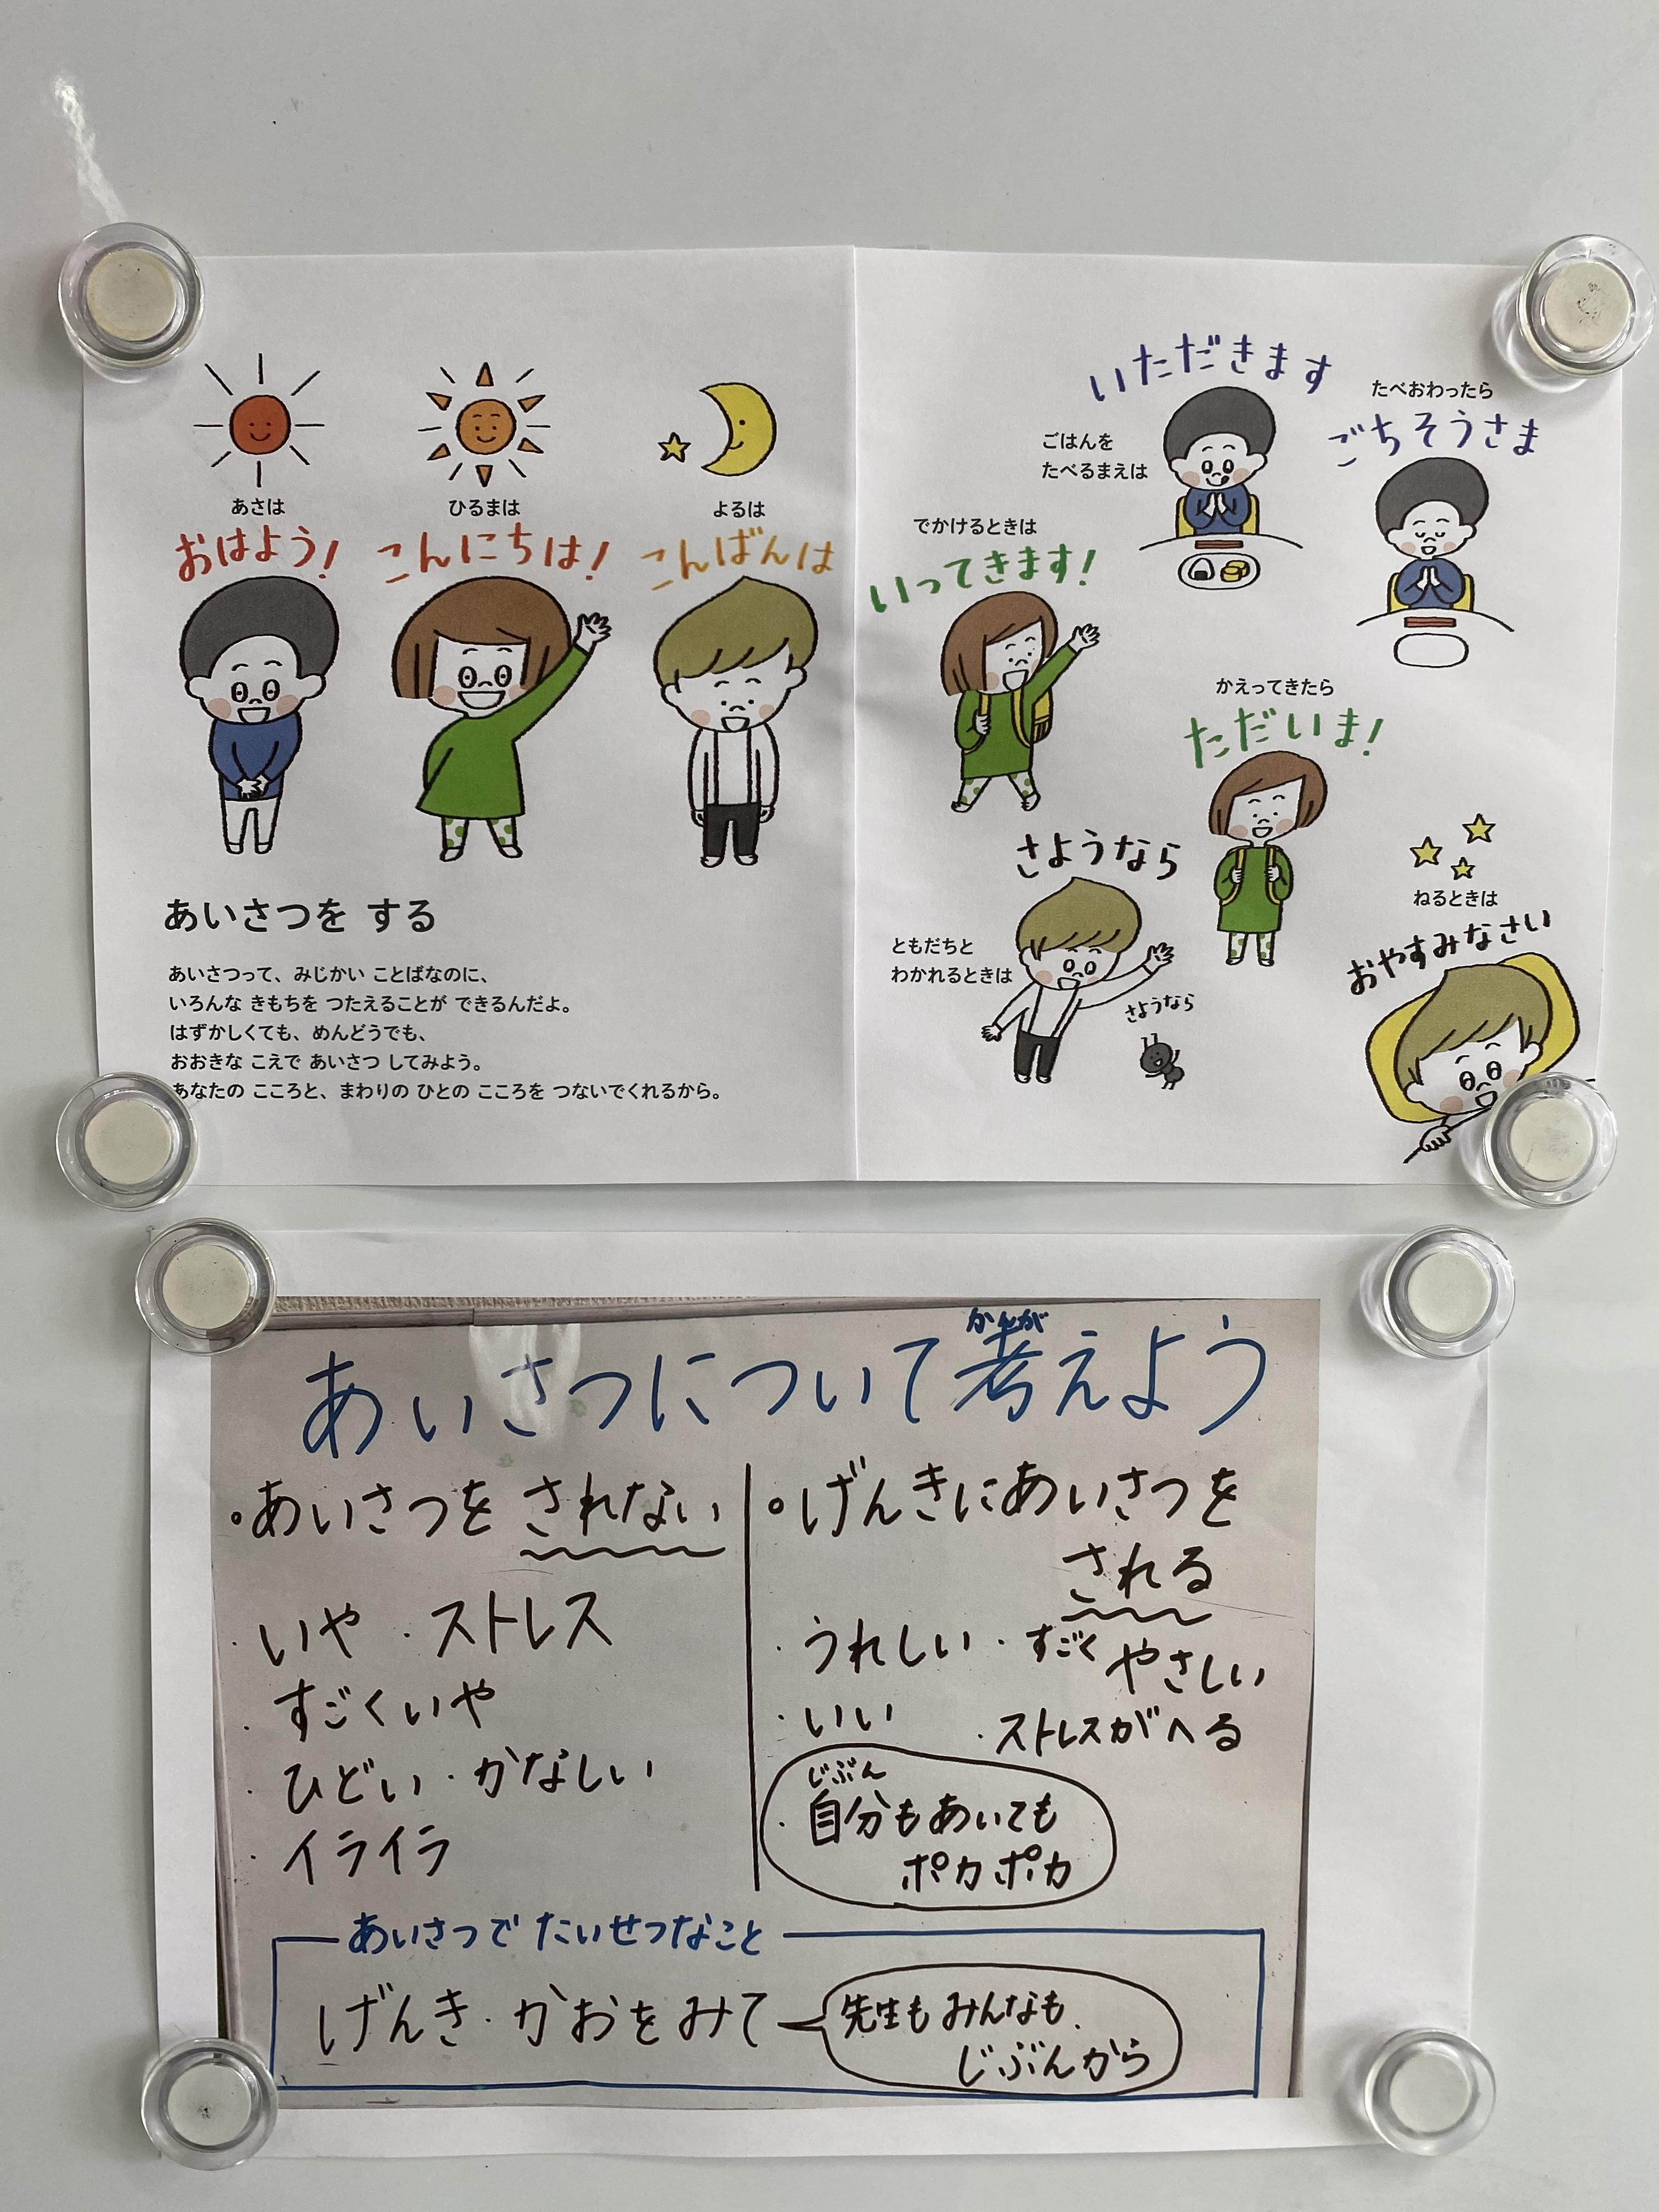 あさは
おはよう!
ひるまは
こんにちは!
よるは
こんばんは
あいさつを する
あいさつって、みじかい ことばなのに、
いろんな きもちを つたえることが できるんだよ。
はずかしくても、めんどうでも、
おおきな こえで あいさつ してみよう。
あなたの こころと、まわりの ひとの こころを つないでくれるから。
ごはんを
たべるまえは
いただきます
たべおわったら
ごちそうさま
でかけるときは
いってきます!
かえってきたら
ただいま!
ともだちと
わかれるときは
さようなら
さようなら
ねるときは
おやすみなさい
かんが
あいさつについて考えよう
。あいさつを されない
・いや ・ストレス
・すごくいや
・ひどい・かなしい
・イライラ
。げんきにあいさつを
される
・うれしい・すごく やさしい
・いい ・ストレスがへる
じぶん
・自分もあいても
ポカポカ
あいさつで たいせつなこと
げんき・かおをみて
先生もみんなも、
じぶんから